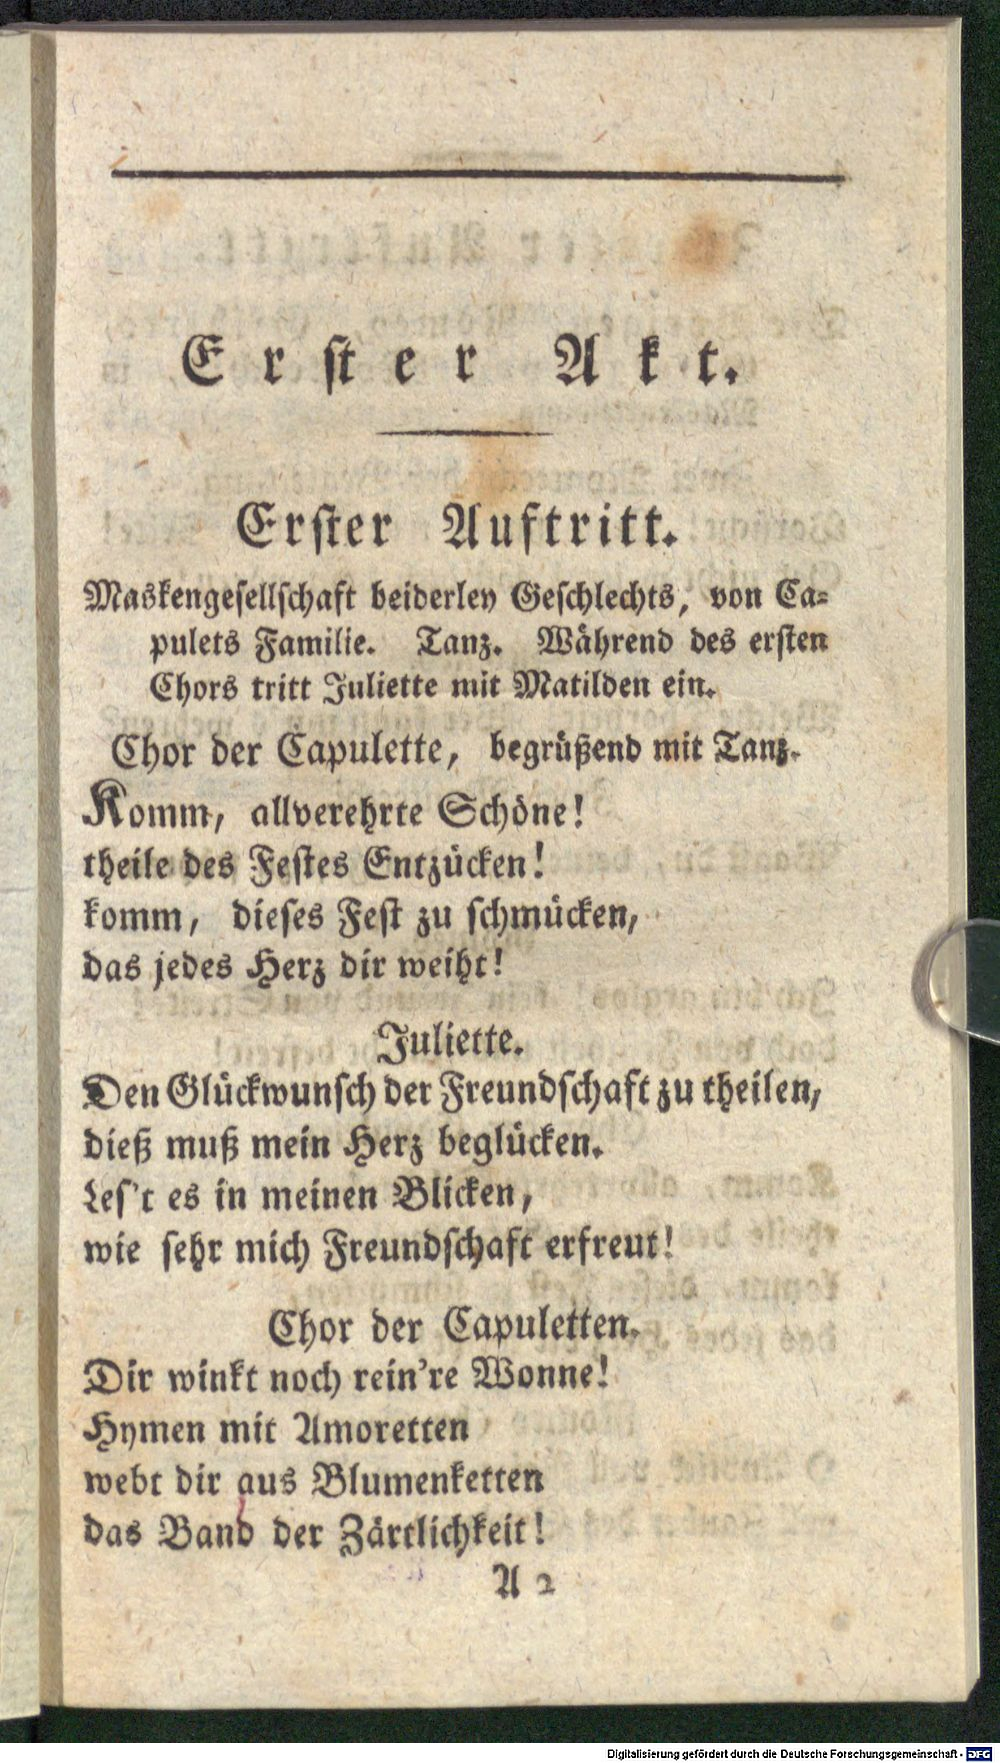 Erster Akt.
Erster Auftritt.
Maskengesellschaft beiderley Geschlechts, von Ca-
pulets Familie. Tanz. Während des ersten
Chors tritt Juliette mit Matilden ein.
Chor der Capulette, begrüßend mit Tanz.
Komm, allverehrte Schöne!
theile des Festes Entzücken!
komm, dieses Fest zu schmücken,
das jedes Herz dir weiht!
Juliette.
Den Glückwunsch der Freundschaft zu theilen,
dieß muß mein Herz beglücken.
Les't es in meinen Blicken,
wie sehr mich Freundschaft erfreut!
Chor der Capuletten.
Dir winkt noch rein're Wonne!
Hymen mit Amoretten
webt dir aus Blumenketten
das Band der Zärtlichkeit!
A 2
Digitalisierung gefördert durch die Deutsche Forschungsgemeinschaft - DFG